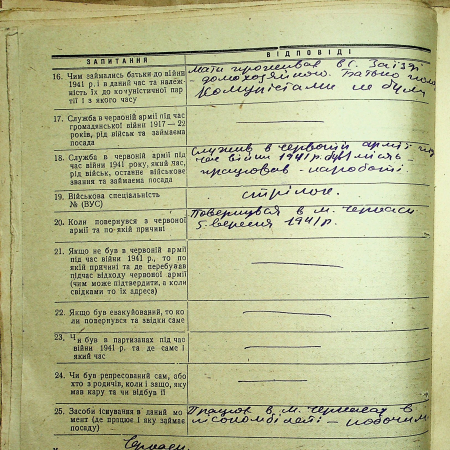 ЗАПИТАННЯ
ВІДПОВІДІ
16. Чим займались батьки до війни
1941 р. і в даний час та належ-
ність їх до комуністичної пар
тії і з якого часу
Мати проживав в с.
домохозяйкою. Батько
Комуністами не були
17. Служба в червоній армії під час
громадянської війни 1917 — 22
років, рід військ та займаєма
посада
18. Служба в червоній армії під
час війни 1941 року, який час,
рід військ, останне військове
звання та займаєма посада
Служив в червоній армії під
час війни 1941 р.
працював - на роботі
19. Військова спеціальність
№ (ВУС)
стрілоч.
20. Коли повернувся з червоної
армії та по-якій причині
Повернувся в м. Черкаси
5. вересня 1941 р.
21. Якщо не був в червоній армії
під час війни 1941 р., то по
якій причині та де перебував
підчас відходу червоної армії
(чим може підтвердити, а коли
свідками то їх адреса)
22. Якщо був евакуйований, то ко
ли повернувся та звідки саме
23. Чи був в партизанах під час
війни 1941 р. та де саме і
який час
24. Чи був репресований сам, або
хто з родичів, коли і защо, яку
мав кару та чи відбув її
25. Засоби існування в даний мо
мент (де працює і яку займає
посаду)
Працює в м. Черкасах в
лісокомбінаті — робочим
Черкаси